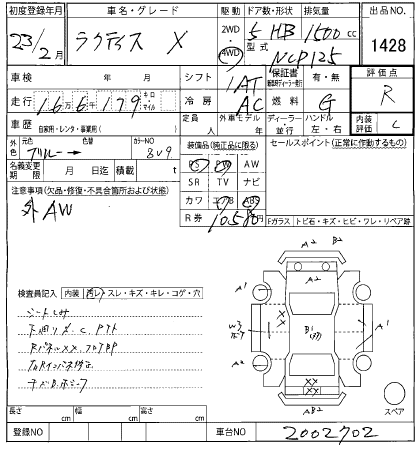 初度登録年月 車名・グレード 駆動 ドア数・形状 排気量 出品NO.
23/2月 ラクティス X 2WD 4WD 5 HB 1500cc 1428
型式 NCP125
車検 年 月 シフト 1AT 保証書 有・無 評価点
走行 16万6千179 キロ マイル 冷房 AC 燃料 G R
車歴 自家用・レンタ・事業用( ) 定員 人 外車モデル 年 ディーラー 並行 ハンドル 左・右 内装評価 C
外色 元色 ブルー→ 色替 カラーNO 8V9 装備品(純正品に限る) セールスポイント(正常に動作するもの)
名義変更期限 月 日迄 積載 t PS PW AW
注意事項(欠品・修復・不具合箇所および状態) SR TV ナビ
外AW カワ エアB ABS
R券 10580 Fガラス トビ石・キズ・ヒビ・ワレ・リペア跡
A2 B2
検査員記入 内装 汚レ・スレ・キズ・キレ・コゲ・穴
シートしみ
A1 A1
W3 B1 A1
A2 A2
XX
XX
AB2 スペア
長さ cm 幅 cm 高さ cm
登録NO 車台NO 2002702